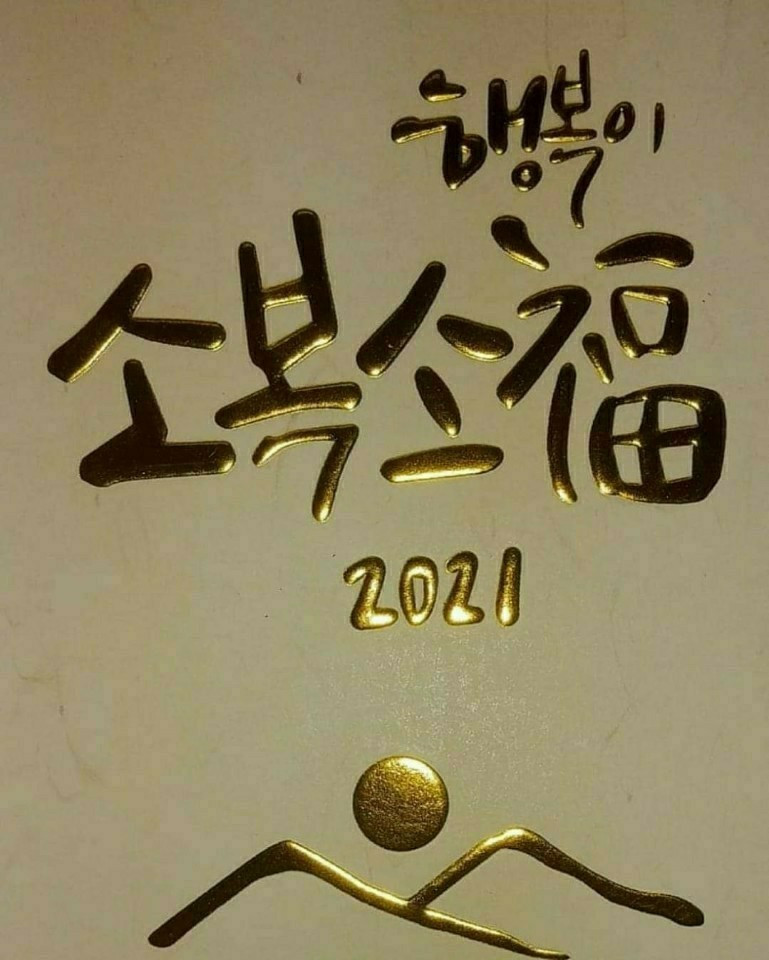 행복이
소복소福
2021